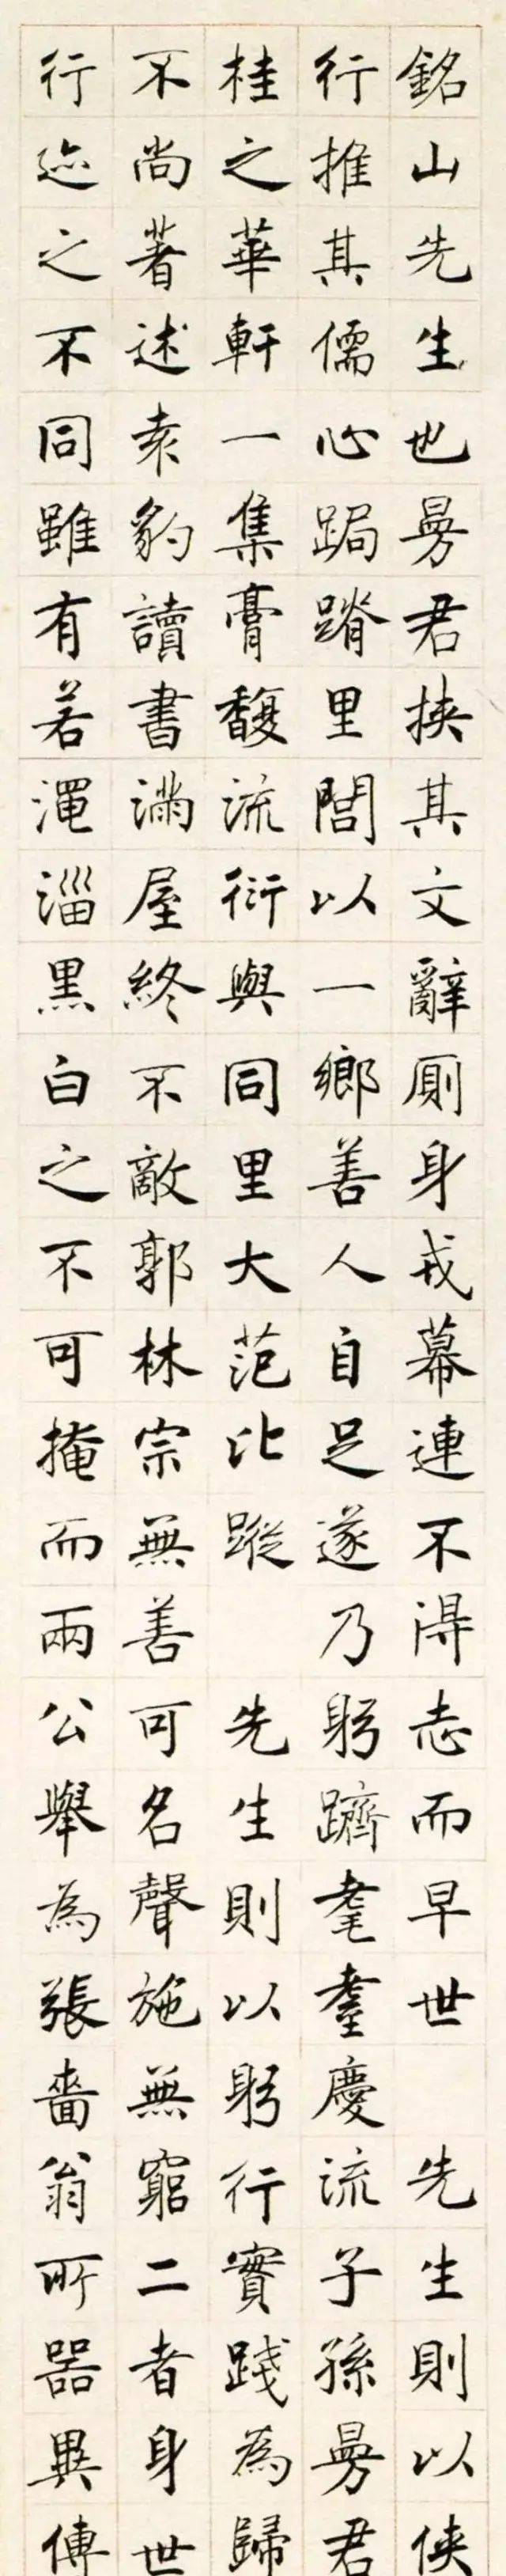 銘山先生也曼君挾其文辭廁身戎幕連不得志而早世 先生則以俠
行推其儒心跼蹐里閭以一鄉善人自足遂乃躬躋耄耋慶流子孫曼君
桂之華軒一集膏馥流衍與同里大范比蹤 先生則以躬行實踐為歸
不尚著述袁豹讀書滿屋終不敵郭林宗無善可名聲施無窮二者身世
行迹之不同雖有若澠淄黑白之不可掩而兩公舉為張嗇翁所器異傳